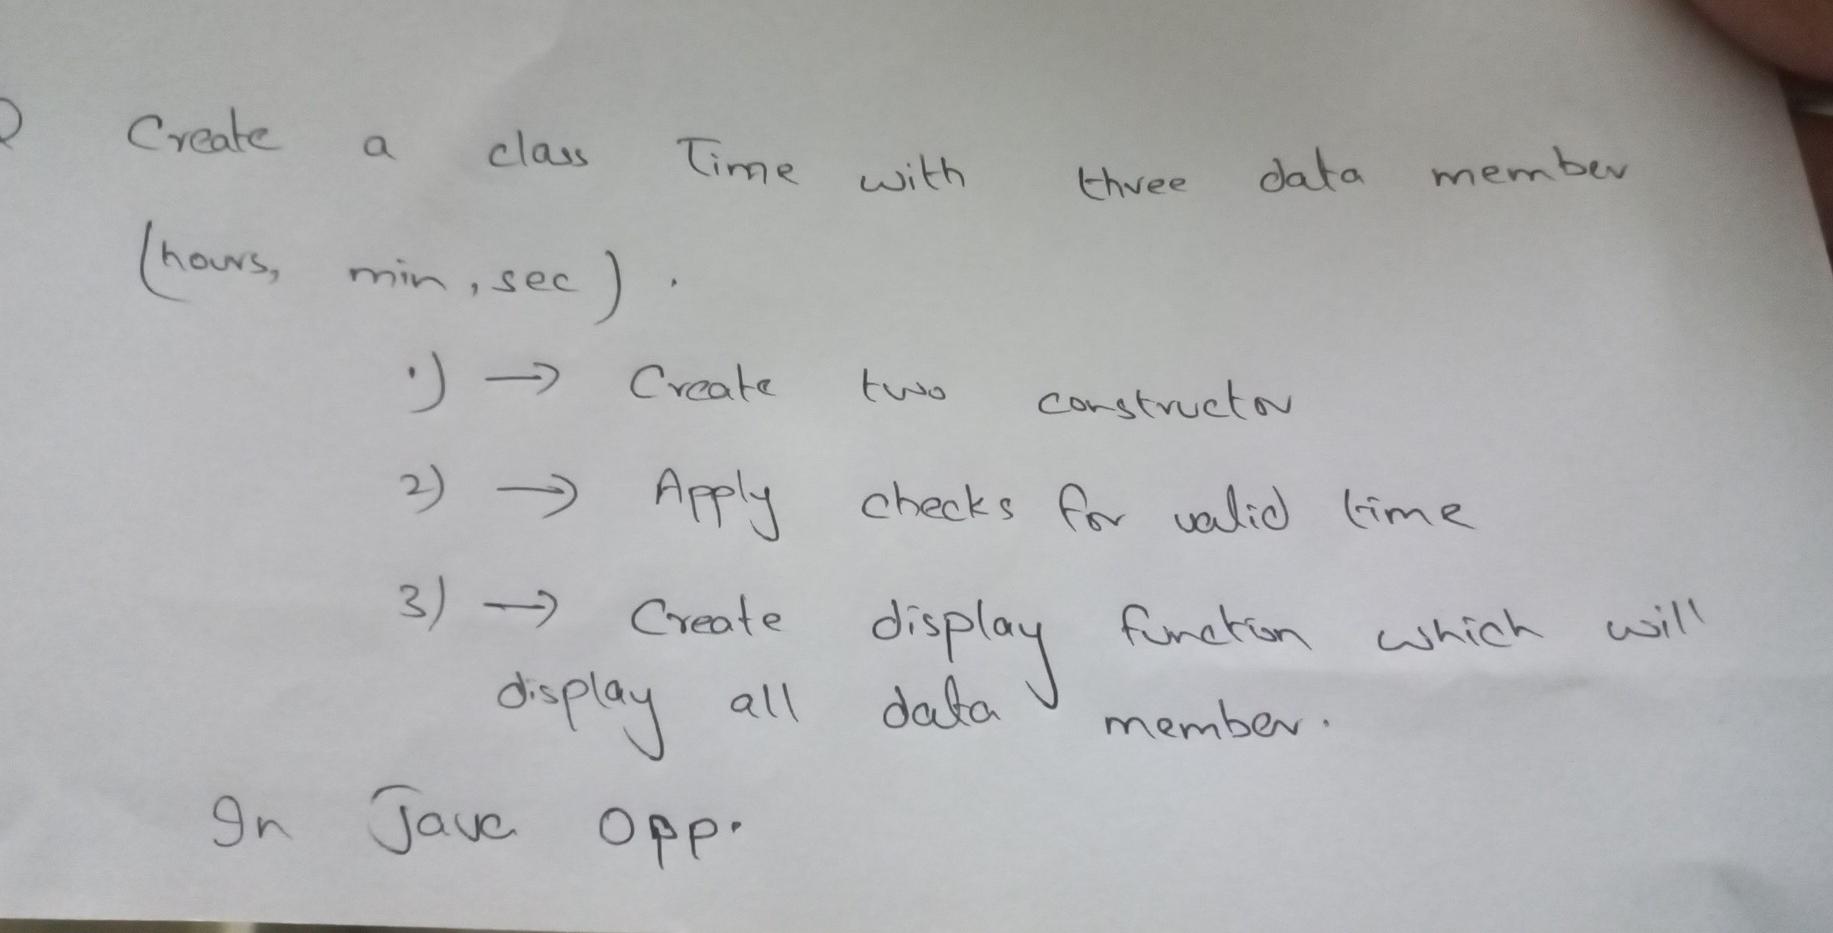 Create a class Time with three data member
(hours, min, sec).
1) → Create two constructor
2) → Apply checks for valid time
3) → Create display function which will
display all data member.
In Java OPP.